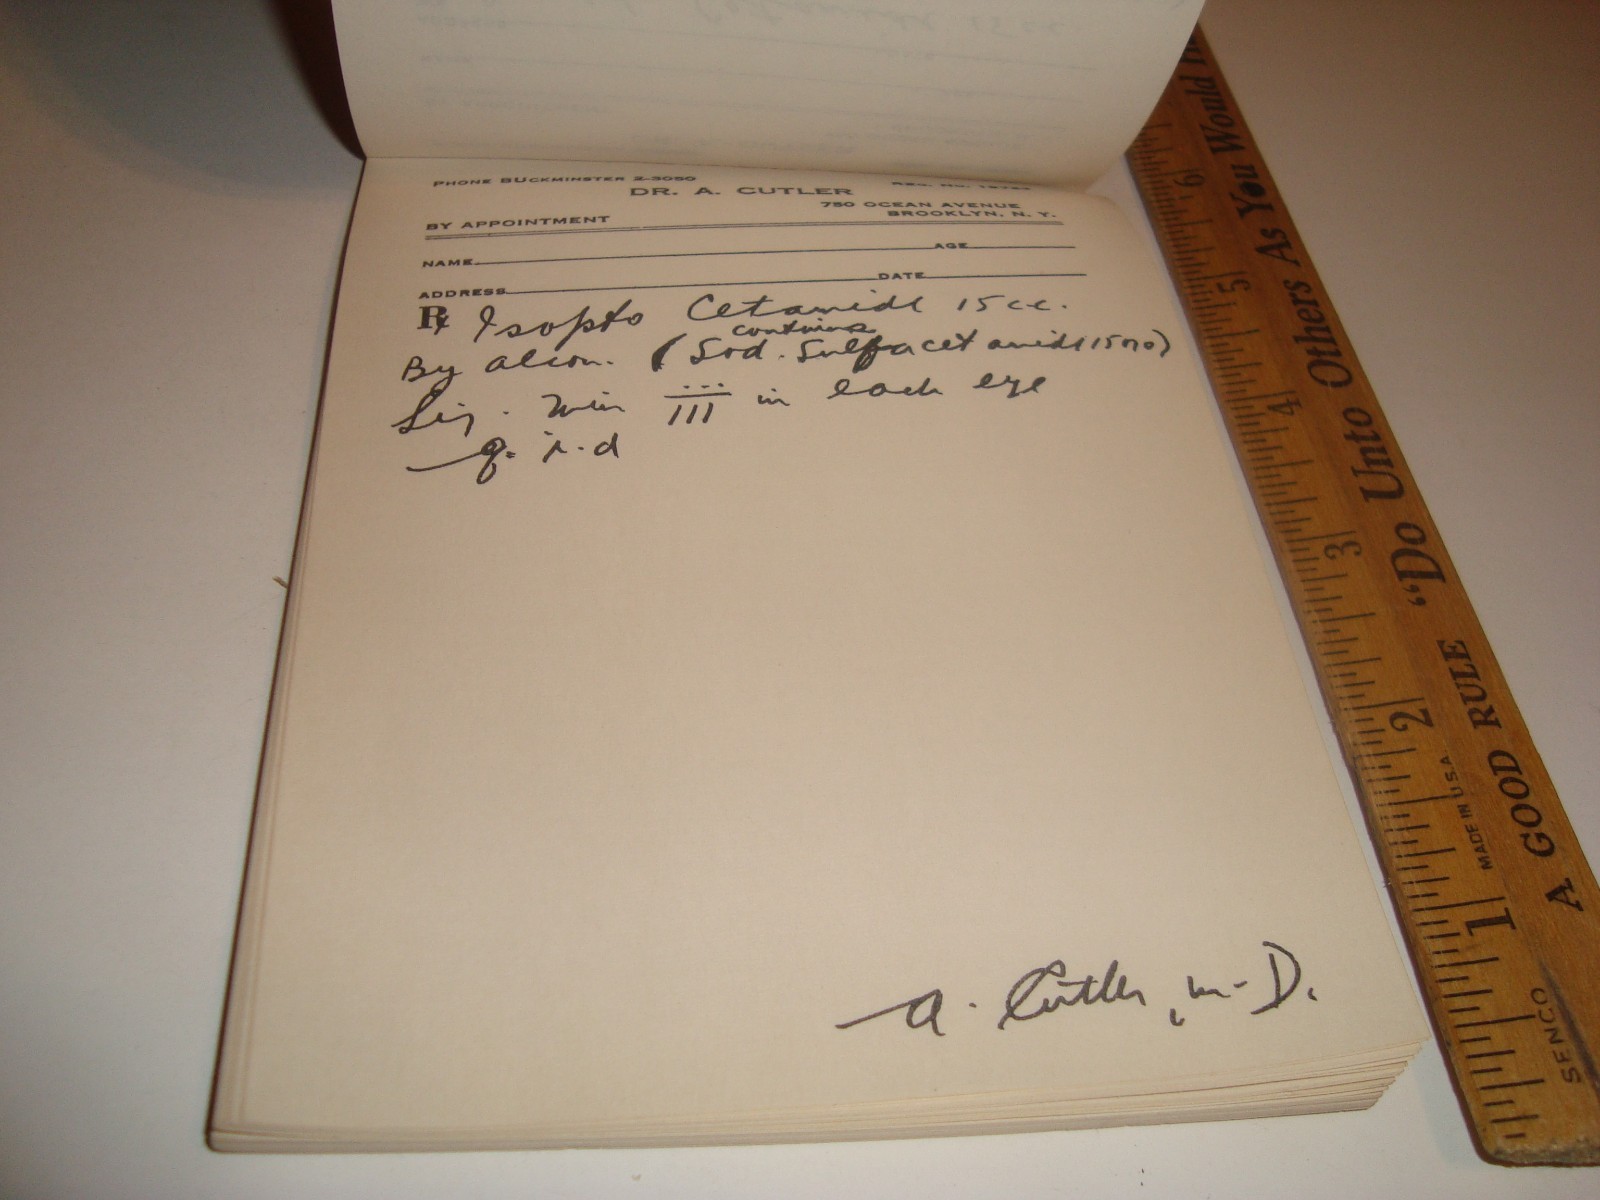 PHONE BUCKMINSTER 2-5050
DR. A. CUTLER
750 OCEAN AVENUE
BY APPOINTMENT BROOKLYN, N. Y.
NAME AGE
ADDRESS DATE
Rx Isopto Cetamide 15 cc.
By alcon. (contains Sod. Sulfacetamide 15%)
Sig. Min iii in each eye
q. i. d
A. Cutler, M.D.
"Do Unto Others As You Would
A GOOD RULE
MADE IN U.S.A.
SENCO
1 2 3 4 5 6